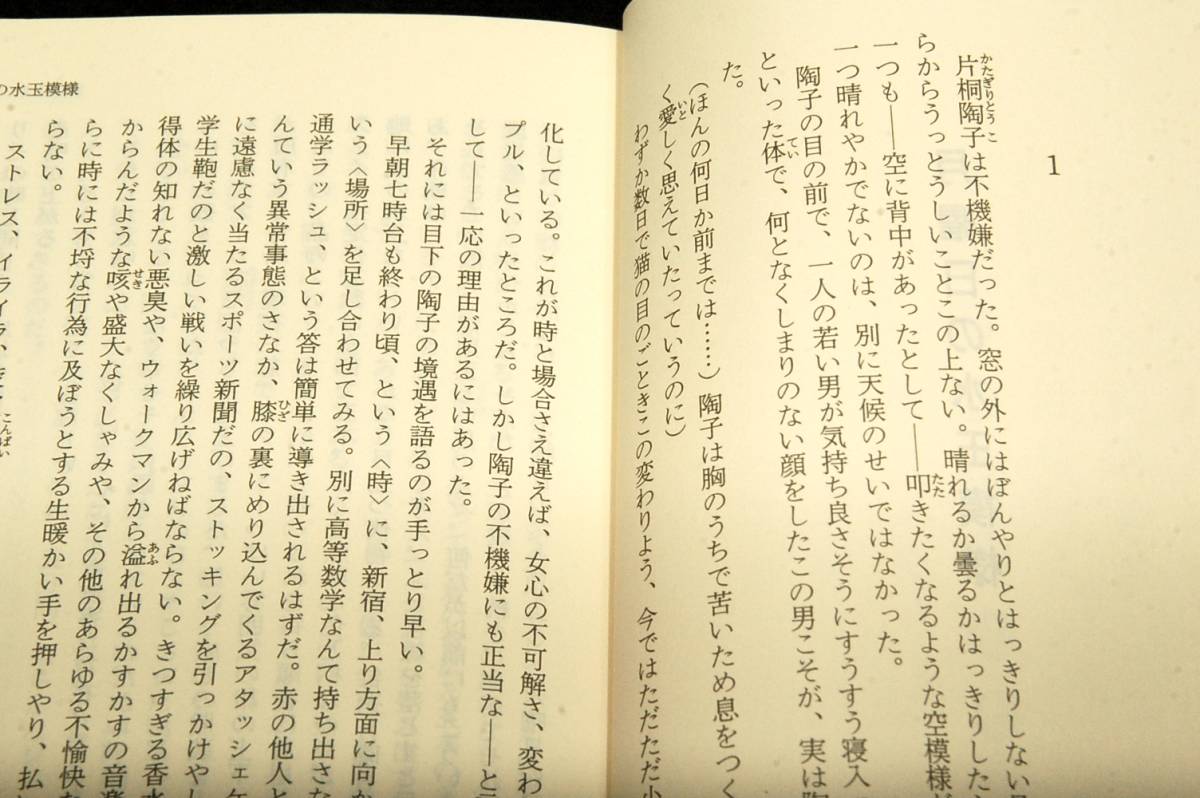 1
片桐陶子は不機嫌だった。窓の外にはぼんやりとはっきりしない
らからうっとうしいことこの上ない。晴れるか曇るかはっきりした
一つも――空に背中があったとして――叩きたくなるような空模様
一つ晴れやかでないのは、別に天候のせいではなかった。
陶子の目の前で、一人の若い男が気持ち良さそうにすうすう寝入
といった体で、何となくしまりのない顔をしたこの男こそが、実は
た。
(ほんの何日か前までは……)陶子は胸のうちで苦いため息をつく
く愛しく思えていたっていうのに)
わずか数日で猫の目のごときこの変わりよう、今ではただただ
の水玉模様
化している。これが時と場合さえ違えば、女心の不可解さ、変わ
プル、といったところだ。しかし陶子の不機嫌にも正当な――と
して――一応の理由があるにはあった。
それには目下の陶子の境遇を語るのが手っとり早い。
早朝七時台も終わり頃、という〈時〉に、新宿、上り方面に向か
いう〈場所〉を足し合わせてみる。別に高等数学なんて持ち出さな
通学ラッシュ、という答は簡単に導き出されるはずだ。赤の他人と
んていう異常事態のさなか、膝の裏にめり込んでくるアタッシェケ
に遠慮なく当たるスポーツ新聞だの、ストッキングを引っかけやし
学生鞄だのと激しい戦いを繰り広げねばならない。きつすぎる香水
得体の知れない悪臭や、ウォークマンから溢れ出るかすかすの音楽
からんだような咳や盛大なくしゃみや、その他のあらゆる不愉快な
らに時には不埒な行為に及ぼうとする生暖かい手を押しやり、払い
らない。
ストレス、イライラ、